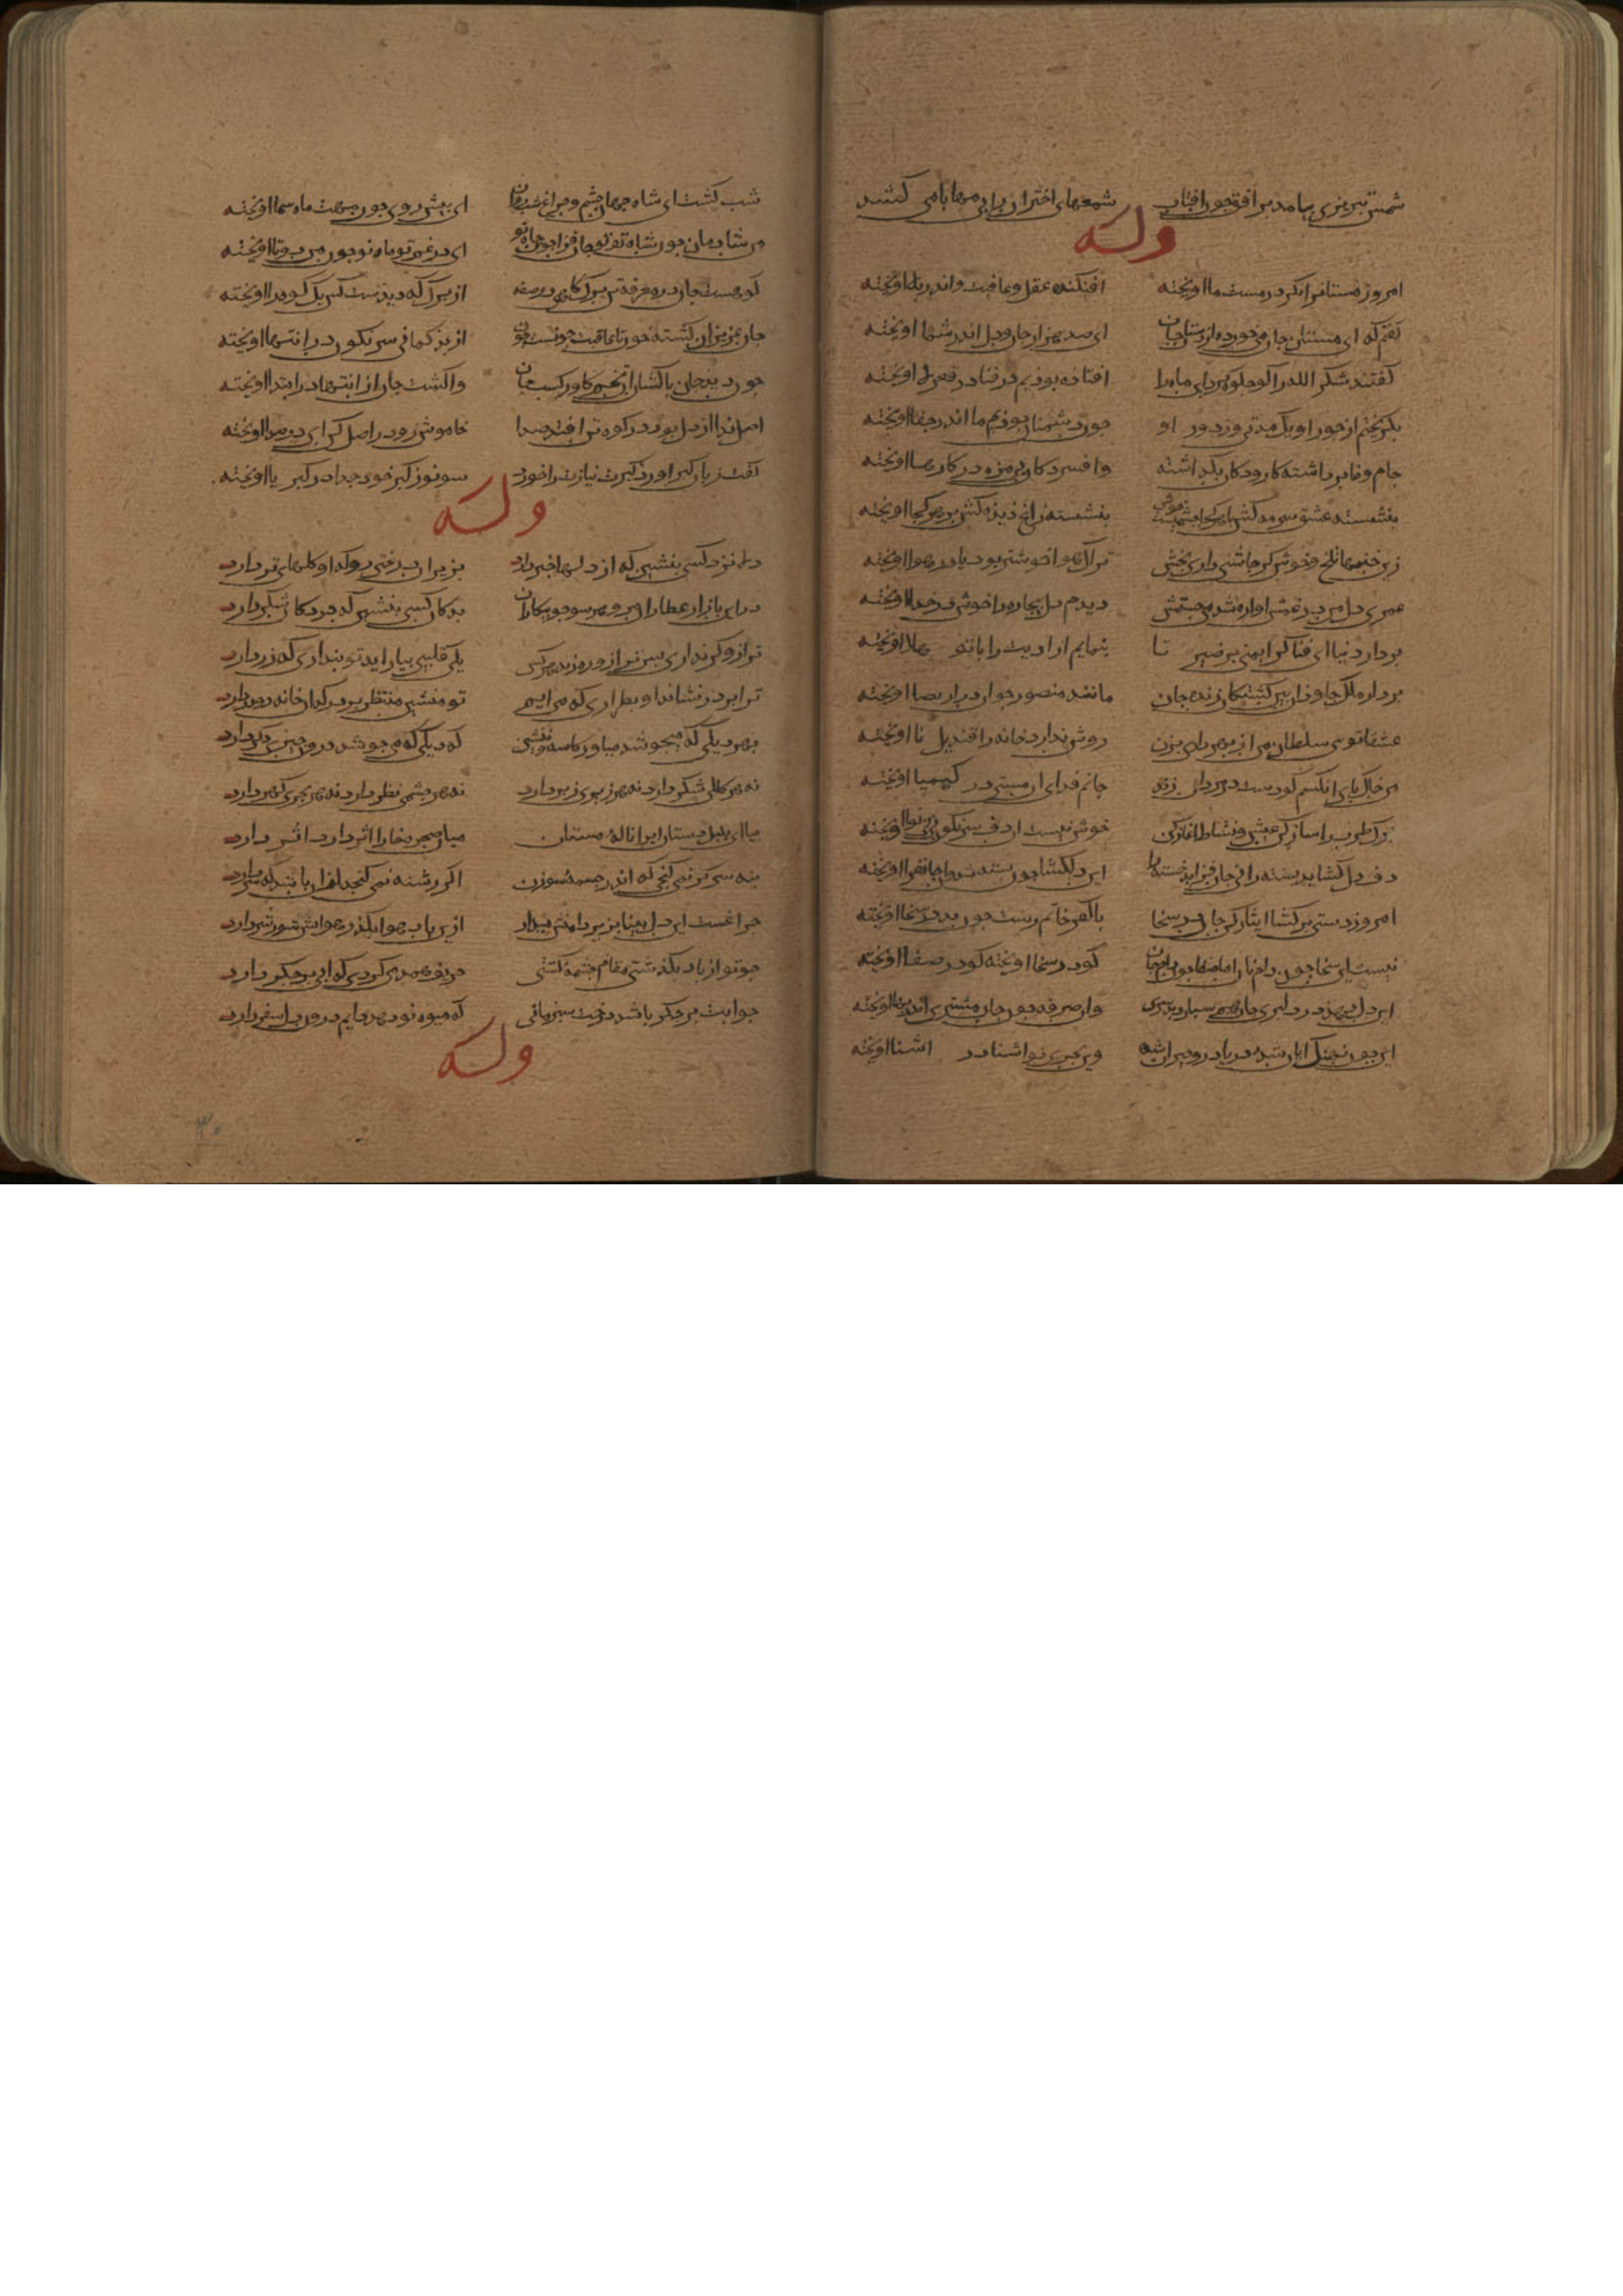 شمس تبریزی بیامد بر افق چون افتاب شمعهای اختران را بی مهابا می کشند
وله
امروز مستانرا نکر در مست ما اویخته افکنده عقل و عافیت واندر بلا اویخته
کفتم که ای مستان جان می خورده از دستان جان ای صد هزاران جان و دل اندر شما اویخته
کفتند شکر الله را کو جلوه کرد این ماه را افتاده بودیم در فنا در قعر چاه اویخته
بکریختم از جور او یک مدتی وز دور او چون دشمنان بودیم ما اندر جفا اویخته
جام وفا برداشته کار و دکان بکذاشته وافسردکان بی مزه در کارها اویخته
بنشسته عشق سرمد کش بنشسته زاغ دیده کش بر هر کجا اویخته
زین خنبهای تلخ و خوش کر چاشنی داری بچش ترک هوا خوشتر بود یا در هوا اویخته
عمری دل من در غمش اواره شد می جستمش دیدم دل بیچاره را خوش در خدا اویخته
بر دار دنیا ای فتا کر ایمنی برخیز تا بنمایم ارادیت را با تو هلا اویخته
بر دار ملک جاودان بین کشتکان زنده جان مانند منصور جوان در ارتضا اویخته
عشقا توی سلطان من از بهر من داری بزن روشن ندارد خانه را قندیل نا اویخته
من خاک پای انکسم کو دست در مردان زند جانم فدای ان مسی در کیمیا اویخته
برک طرب را ساز کن عیش و نشاط اغاز کن خوش نیست ان دف سرنکون نی بی نوا اویخته
دف دل کشاید بسته را نی جان فزاید خسته را این دلکشا چون بسته شد وان جانفزا اویخته
امروز دستی برکشا ایثار کن جان در سخا با کفر حاتم رست چون بد در سخا اویخته
نیست ان سخا چون دام نان اما صفا چون دام جان کو در سخا اویخته کو در صفا اویخته
این دل دهد در دلبری جان هم سپارد بر سری وان صرفه جو چون مشتری اندر بها اویخته
این چون نهنک ایان شده دریا درو حیران شده وین بحری نو اشنا در اشنا اویخته
شب کشت ای شاه جهان چشم و چراغ شب روان ای پیش روی چون مهت ماه سما اویخته
من شادمان چون شاه تو تو جان فزا چون جاه تو ای در غم تو ماه نو چون من دوتا اویخته
کوهست جان در معرفت تن برک کاهی در صفت از برک که دیدست کس یک کوه را اویخته
جان عزیزان کشته خون تا عاقبت چونست چون از بدکمانی سرنکون در انتها اویخته
چون دید جان پاکشان ان تخم کاول کاشت جان واکشت جان از انتها در ابتدا اویخته
اصل ندا از دل بود در کوه تن افتد صدا خاموش رو در اصل کن ای در صدا اویخته
کفت زبان کبر اورد کبرت نیازت را خورد سو تو ز کبر خود جدا در کبریا اویخته
وله
دلا نزد کسی بنشین که از دلها خبر دارد بزیر ان درختی رو که او کلهای تر دارد
در این بازار عطاران مرو هر سو چو بی کاران بدکان کسی بنشین که در دکان شکر دارد
ترازو کر نداری پس ترا زو ره زند هر کس یکی قلبی بیاراید تو پنداری که زر دارد
ترا بر در نشاند او بطراری که می ایم تو منشین منتظر بر در که ان خانه دو در دارد
بهر دیکی که میجوشد میاور کاسه و منشین که دیکی که می جوشد درون چیزی دکر دارد
نه هر کلکی شکر دارد نه هر زیری زبر دارد نه هر چشمی نظر دارد نه هر بحری کهر دارد
بیا ای بلبل دستان ایرا ناله مستان میان صخره خارا اثر دارد اثر دارد
بنه سر کر نمی کنجی که اندر چشمه سوزن اکر رشته نمی کنجد ازان باشد که سر دارد
چراغست این دل بیدار بزیر دامنش میدار ازین باد هوا بکذر هوایش شور و شر دارد
چو تو از باد بکذشتی مقام چشمه کشتی حریف همدمی کردی که ابی بر جکر دارد
چو ابت بر جکر باشد درخت سبز مانی که میوه نو دهد دایم درون دل سفر دارد
وله